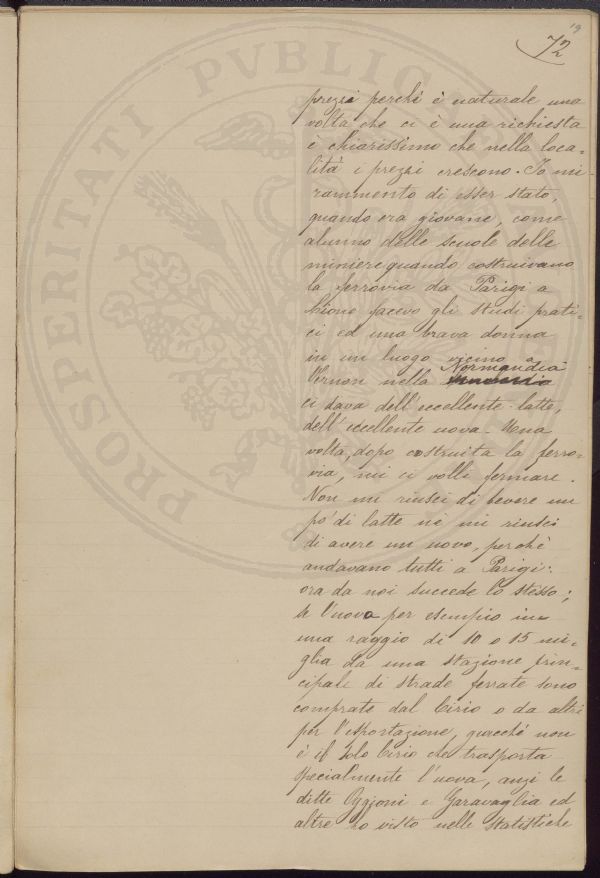 19
72
PROSPERITATI PVBLICAE
prezzi perchè è naturale una
volta che ci è una richiesta
è chiarissimo che nella loca-
lità i prezzi crescono. Io mi
rammento di esser stato,
quando era giovane, come
alunno delle scuole delle
miniere quando costruivano
la ferrovia da Parigi a
facevo gli studi prati-
ci ed una brava donna
in un luogo vicino a
Vernon nella Normandia
ci dava dell'eccellente latte,
dell'eccellente uova. Una
volta, dopo costruita la ferro-
via, mi ci volli fermare.
Non mi riusci di bevere un
po' di latte nè mi riusci
di avere un uovo, perchè
andavano tutti a Parigi:
ora da noi succede lo stesso;
se l'uova per esempio in
una raggio di 10 o 15 mi-
glia da una stazione prin-
cipale di strade ferrate sono
comprate dal Cirio o da altri
per l'esportazione, giacchè non
è il solo Cirio che trasporta
specialmente l'uova, anzi le
ditte Oggioni e Garavaglia ed
altre ho visto nelle statistiche